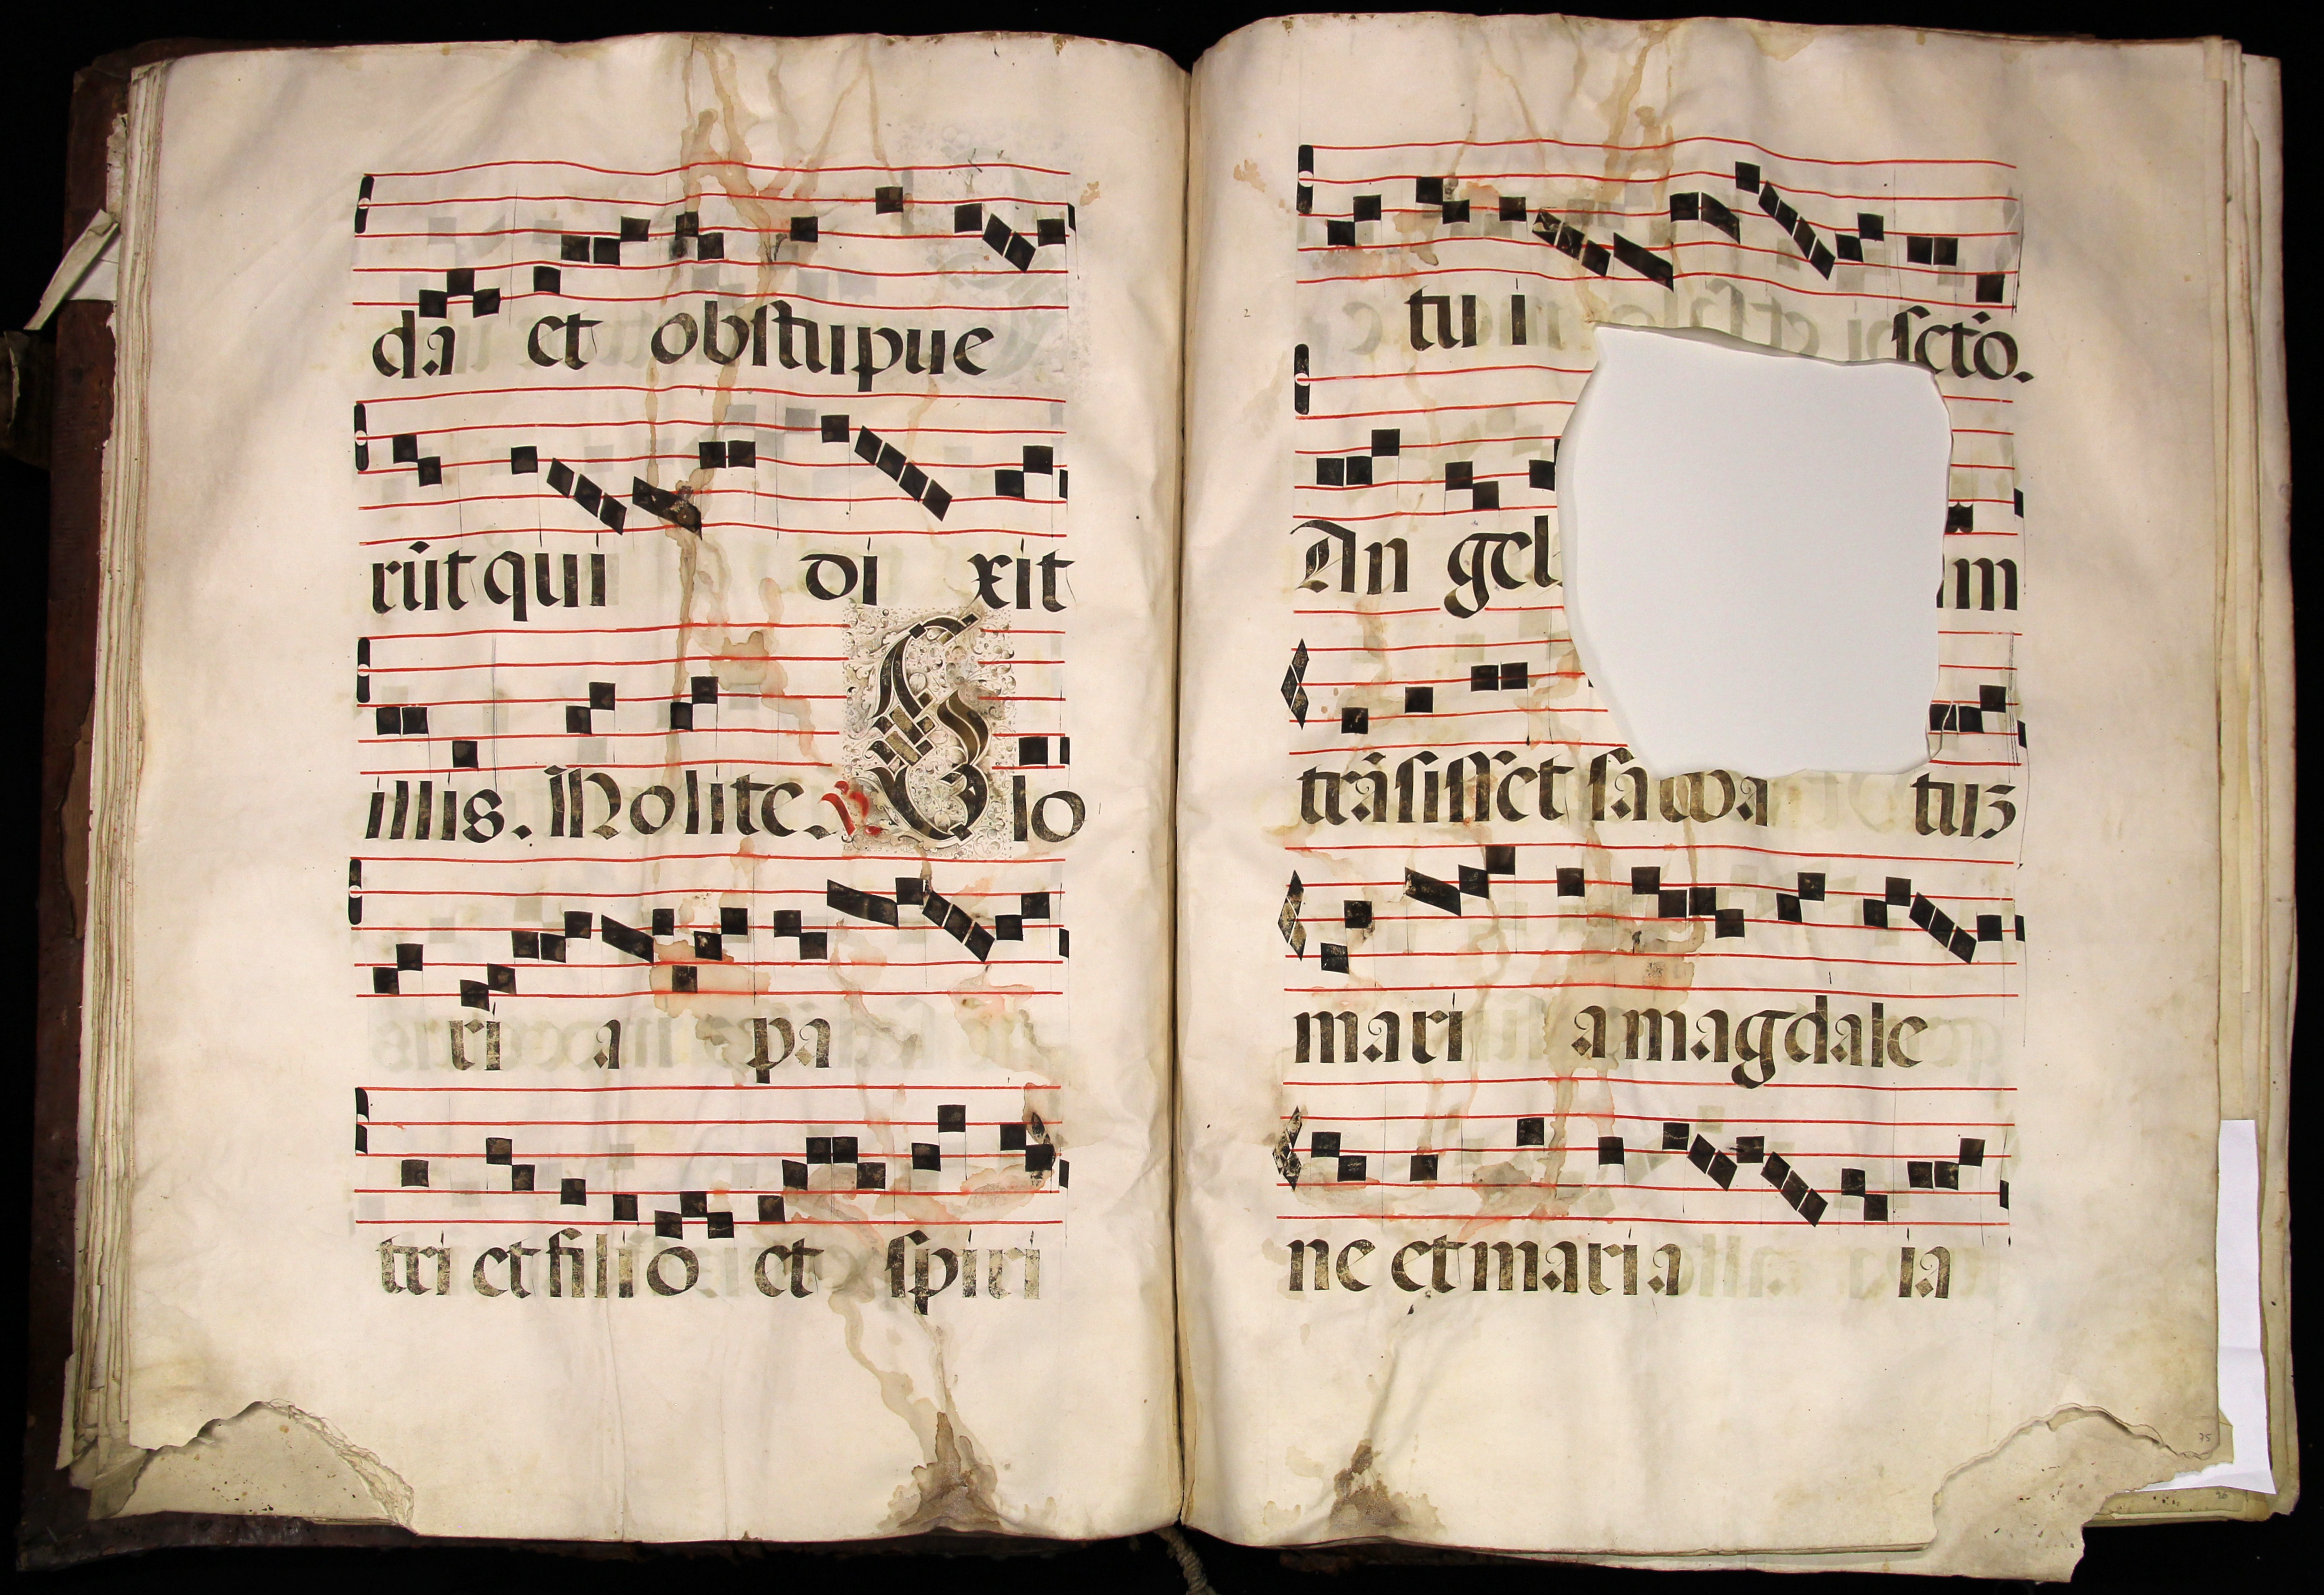 da et obstupue
rūt qui di xit
illis. Nolite. ℣ Glo
ri a pa
tri et filio et spiri
tu i scto.
An gel m
trāsisset sabba tuʒ
mari a magdale
ne et maria ia
75